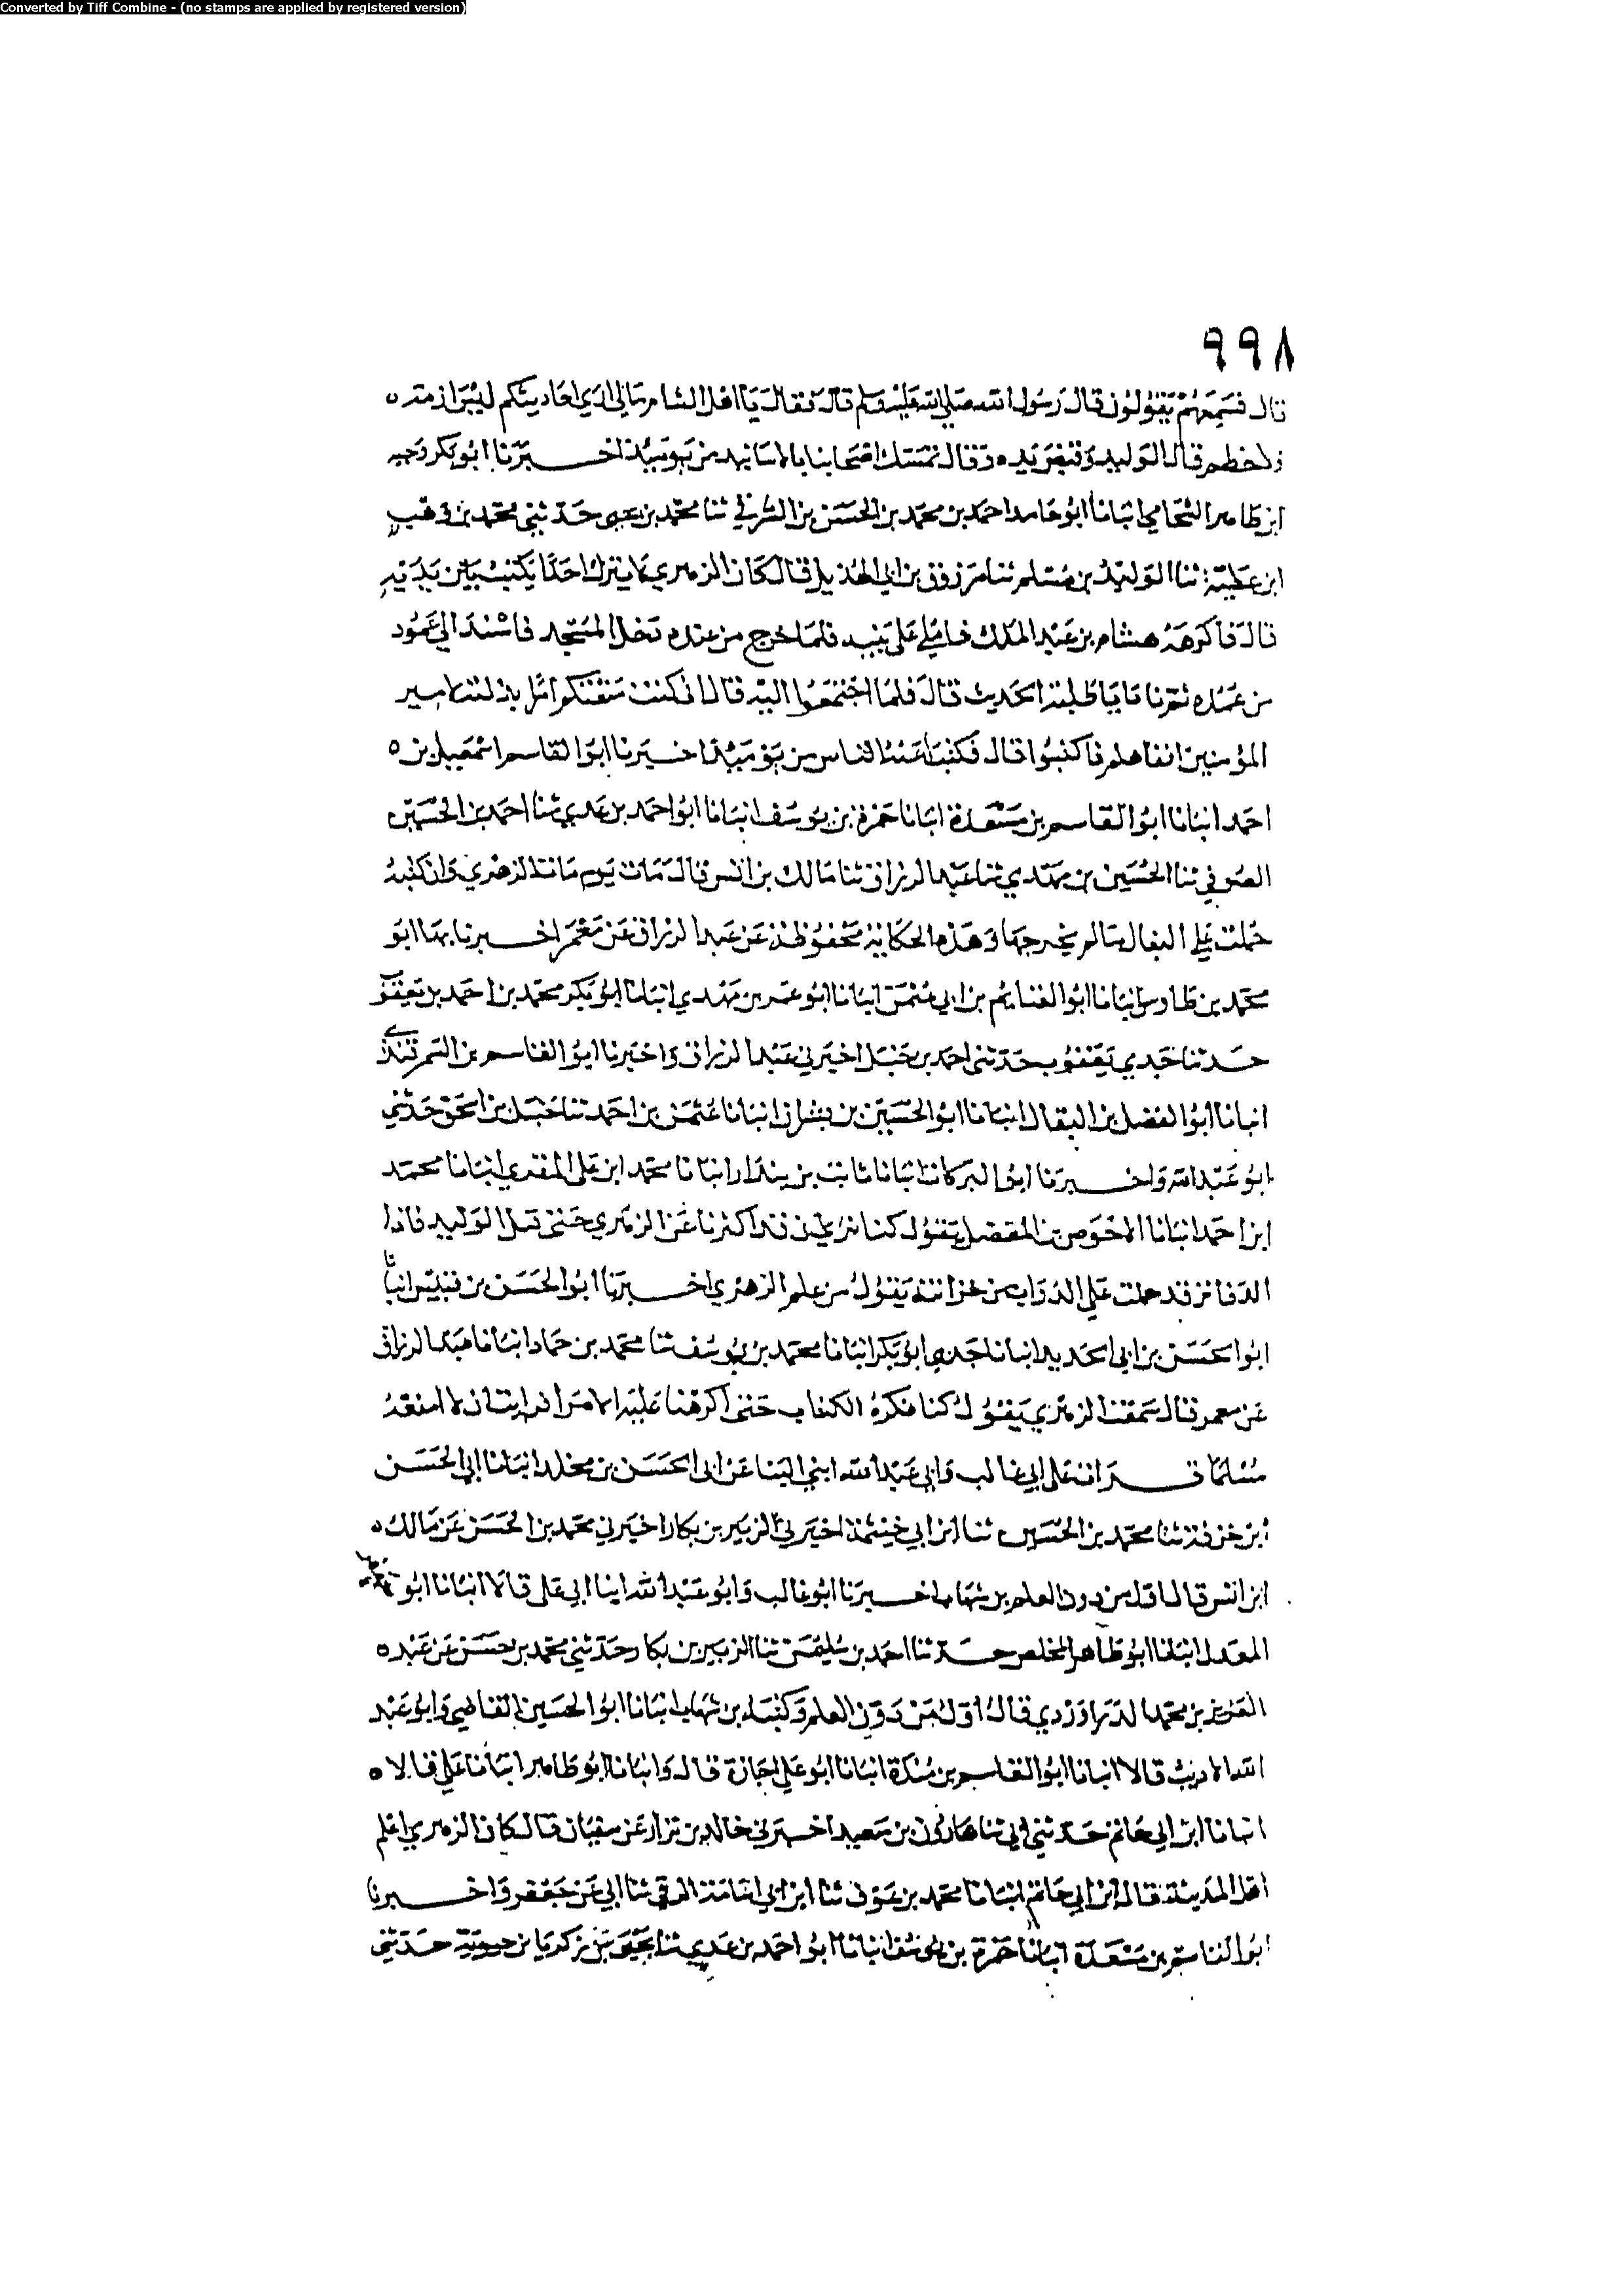 Converted by Tiff Combine - (no stamps are applied by registered version)
٩٩٨
قال فسمعهم يقولون قال رسول الله صلى الله عليه وسلم قال فقال يا اهل الشام مالي ارى احاديثكم ليس لها ازمة
ولا خطم قال الوليد وقبض يده وقال تمسك اصحابنا بالاسانيد من يومئذ اخبرنا ابو بكر وجيه
ابن طاهر الشحامي انبانا ابو حامد احمد بن محمد بن الحسن بن الشرقي ثنا محمد بن يحيى حدثني محمد بن وهب
ابن عطية ثنا الوليد بن مسلم ثنا مرزوق بن ابي الهذيل قال كان الزهري لا يترك احدا يكتب بين يديه
قال فاكرهه هشام بن عبد الملك فاملى على بنيه فلما خرج من عنده دخل المسجد فاسند الى عمود
من عمده ثم نادا يا طلبة الحديث قال فلما اجتمعوا اليه قال اني كنت منعتكم امرا بذلته لامير
المؤمنين انفا هلم فاكتبوا قال فكتب عنه الناس من يومئذ اخبرنا ابو القاسم اسمعيل بن
احمد انبانا ابو القاسم بن مسعدة انبانا حمزة بن يوسف انبانا ابو احمد بن عدي ثنا احمد بن الحسين
الصوفي ثنا الحسين بن مهدي ثنا عبد الرزاق ثنا مالك بن انس قال مات يوم مات الزهري وان كتبه
حملت على البغال مما لم يخرجها وهذه الحكاية محفوظة عن عبد الرزاق عن معمر اخبرنا بها ابو
محمد بن طاوس انبانا ابو الغنائم بن ابي عثمن انبانا ابو عمر بن مهدي انبانا ابو بكر محمد بن احمد بن يعقوب
حدثنا جدي يعقوب حدثني احمد بن حنبل اخبرني عبد الرزاق واخبرنا ابو القاسم بن السمرقندي
انبانا ابو الفضل بن البقال انبانا ابو الحسين بن بشران انبانا عثمن بن احمد ثنا حنبل بن اسحق حدثني
ابو عبد الله واخبرنا ابو البركات انبانا ثابت بن بندار انبانا محمد ابن علي المقري انبانا محمد
ابن احمد انبانا الاحوص بن المفضل يقول كنا نرى ان قد اكثرنا عن الزهري حتى قتل الوليد فاذا
الدفاتر قد حملت على الدواب من خزائنه يقول من علم الزهري اخبرنا ابو الحسن بن قبيس انبانا
ابو الحسن بن ابي الحديد انبانا جدي ابو بكر انبانا محمد بن يوسف ثنا محمد بن حماد انبانا عبد الرزاق
عن معمر قال سمعت الزهري يقول كنا نكره الكتاب حتى اكرهنا عليه الامرا فرايت ان لا امنعه
مسلما قرات على ابي غالب وابي عبد الله ابني البنا عن ابي الحسن بن مخلد انبانا ابي الحسن
ابن خزفة ثنا محمد بن الحسين ثنا ابن ابي خيثمة اخبرني الزبير بن بكار اخبرني محمد بن الحسن عن مالك
ابن انس قال اول من دون العلم بن شهاب اخبرنا ابو غالب وابو عبد الله ابنا ابي علي قالا انبانا ابو جعفر
المعدل انبانا ابو طاهر المخلص حدثنا احمد بن سليمن ثنا الزبير بن بكار حدثني محمد بن حسن عن عبد
العزيز بن محمد الدراوردي قال اول من دون العلم وكتبه بن شهاب انبانا ابو الحسين القاضي وابو عبد
الله الاديب قالا انبانا ابو القاسم بن مندة انبانا ابو علي اجازة قال وانبانا ابو طاهر انبانا علي قالا
انبانا ابن ابي حاتم حدثني ابي ثنا هارون بن سعيد اخبرني خالد بن نزار عن سفيان قال كان الزهري اعلم
اهل المدينة قال ابن ابي حاتم انبانا محمد بن عوف ثنا ابن ابي اسامة الرقي ثنا ابي عن جعفر واخبرنا
ابو القاسم بن مسعدة انبانا حمزة بن يوسف انبانا ابو احمد بن عدي ثنا يحيى بن زكريا بن حيوية حدثني